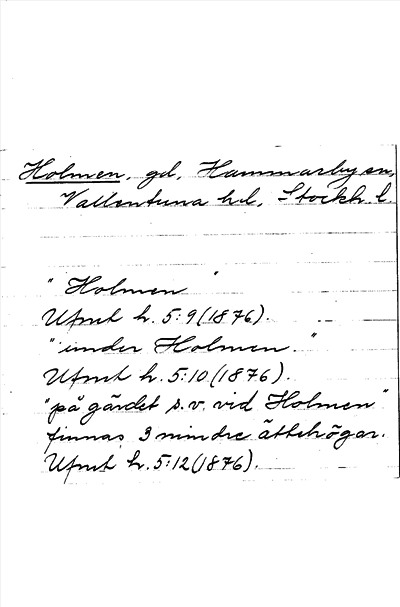 Holmen, gd, Hammarby sn,
Vallentuna hd, Stockh. l.
"Holmen"
Ufmt h. 5:9 (1876).
"under Holmen."
Ufmt h. 5:10 (1876).
"på gärdet s.v. vid Holmen"
finnas 3 mindre ättehögar.
Ufmt h. 5:12 (1876).